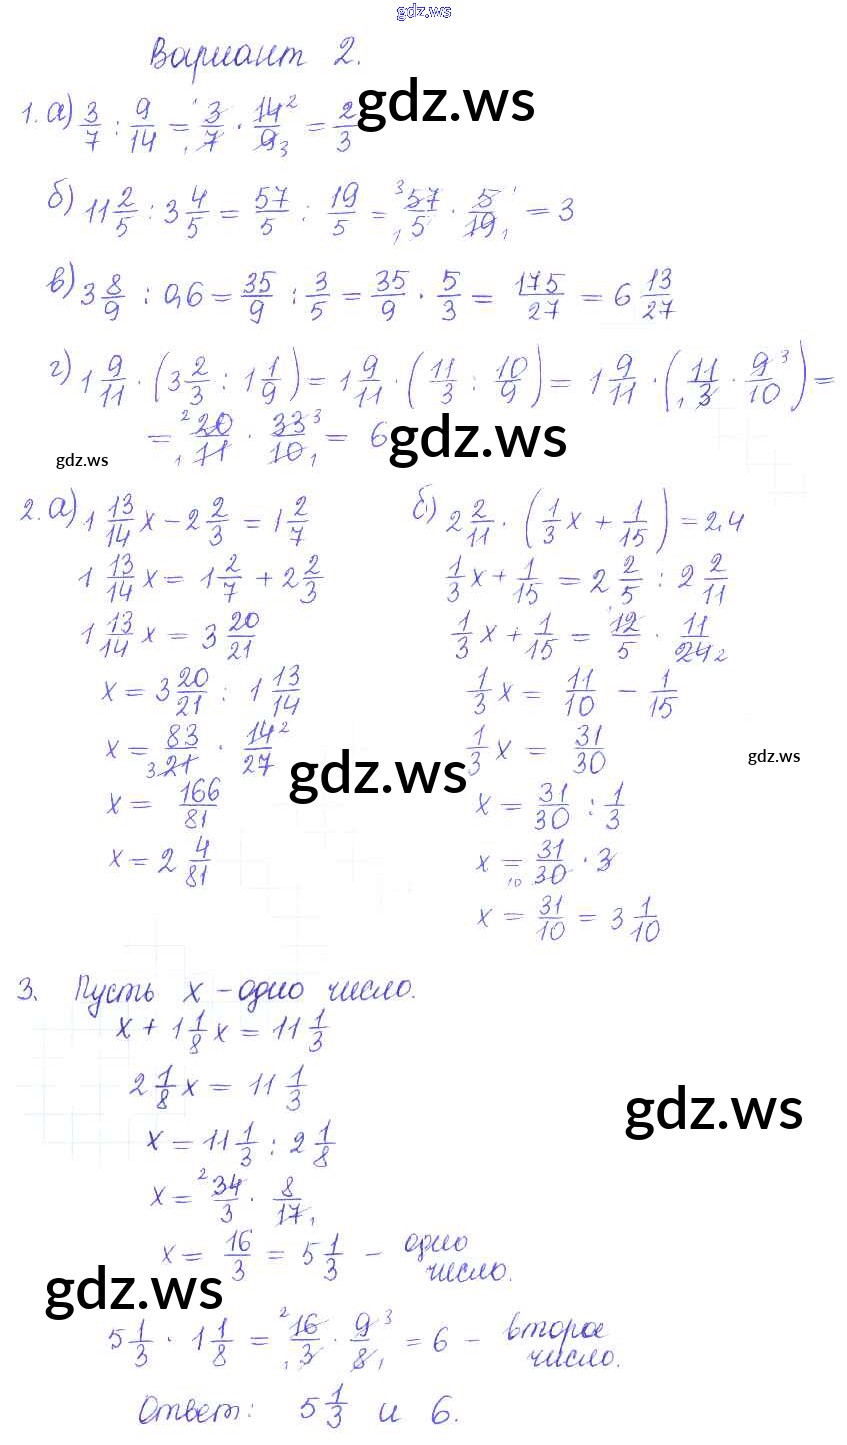 gdz.ws
Вариант 2.
1. а) 3/7 : 9/14 = 3/7 · 14/9 = 2/3 gdz.ws
б) 11 2/5 : 3 4/5 = 57/5 : 19/5 = 57/5 · 5/19 = 3
в) 3 8/9 : 0,6 = 35/9 : 3/5 = 35/9 · 5/3 = 175/27 = 6 13/27
г) 1 9/11 · (3 2/3 : 1 1/9) = 1 9/11 · (11/3 : 10/9) = 1 9/11 · (11/3 · 9/10) =
= 20/11 · 33/10 = 6 gdz.ws
gdz.ws
2. а) 1 13/14 x - 2 2/3 = 1 2/7
1 13/14 x = 1 2/7 + 2 2/3
1 13/14 x = 3 20/21
x = 3 20/21 : 1 13/14
x = 83/21 · 14/27
gdz.ws
x = 166/81
x = 2 4/81
б) 2 2/11 · (1/3 x + 1/15) = 2,4
1/3 x + 1/15 = 2 2/5 : 2 2/11
1/3 x + 1/15 = 12/5 · 11/24
1/3 x = 11/10 - 1/15
1/3 x = 31/30
gdz.ws
x = 31/30 : 1/3
x = 31/30 · 3
x = 31/10 = 3 1/10
3. Пусть x - одно число.
x + 1 1/8 x = 11 1/3
2 1/8 x = 11 1/3
gdz.ws
x = 11 1/3 : 2 1/8
x = 34/3 · 8/17
x = 16/3 = 5 1/3 - одно
число.
gdz.ws
5 1/3 · 1 1/8 = 16/3 · 9/8 = 6 - второе
число.
Ответ: 5 1/3 и 6.